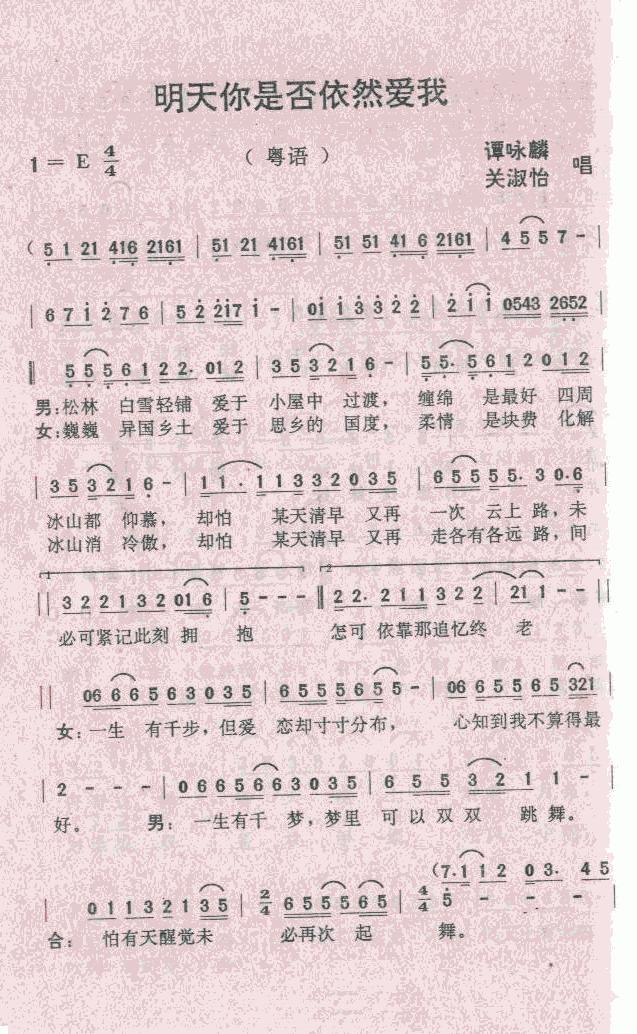 明天你是否依然爱我
1 = E 4/4
（ 粤语 ）
谭咏麟
关淑怡 唱
( 5 1 21 416 2161 | 51 21 4161 | 51 51 41 6 2161 | 4 5 5 7 - |
| 6 7 i 2 7 6 | 5 2 2i7 i - | 0i i 3 3 2 2 | 2 i i 0543 2652
‖ 5 5 5 6 1 2 2. 01 2 | 3 5 3 2 1 6 - | 5 5. 5 6 1 2 0 1 2 |
男：松林 白雪轻铺 爱于 小屋中 过渡， 缠绵 是最好 四周
女：巍巍 异国乡土 爱于 思乡的 国度， 柔情 是块费 化解
| 3 5 3 2 1 6 - | 1 1 . 1 1 3 3 2 0 3 5 | 6 5 5 5 5. 3 0.6 |
冰山都 仰慕， 却怕 某天清早 又再 一次 云上路，未
冰山消 冷傲， 却怕 某天清早 又再 走各有各远路，间
1 2
‖ 3 2 2 1 3 2 01 6 | 5 - - - ‖ 2 2. 2 1 1 3 2 2 | 21 1 - - ‖
必可紧记此刻 拥 抱 怎可 依靠那追忆终 老
‖ 06 6 6 5 6 3 0 3 5 | 6 5 5 5 6 5 5 - | 06 6 5 5 6 5 321
女：一生 有千步，但爱 恋却寸寸分布， 心知到我不算得最
| 2 - - - | 0 6 6 5 6 6 3 0 3 5 | 6 5 5 3 2 1 1 - |
好。 男： 一生有千 梦，梦里 可以双双 跳舞。
(7. 1 1 2 0 3. 4 5
| 0 1 1 3 2 1 3 5 | 2/4 6 5 5 5 6 5 | 4/4 5 - - - |
合： 怕有天醒觉未 必再次 起 舞。